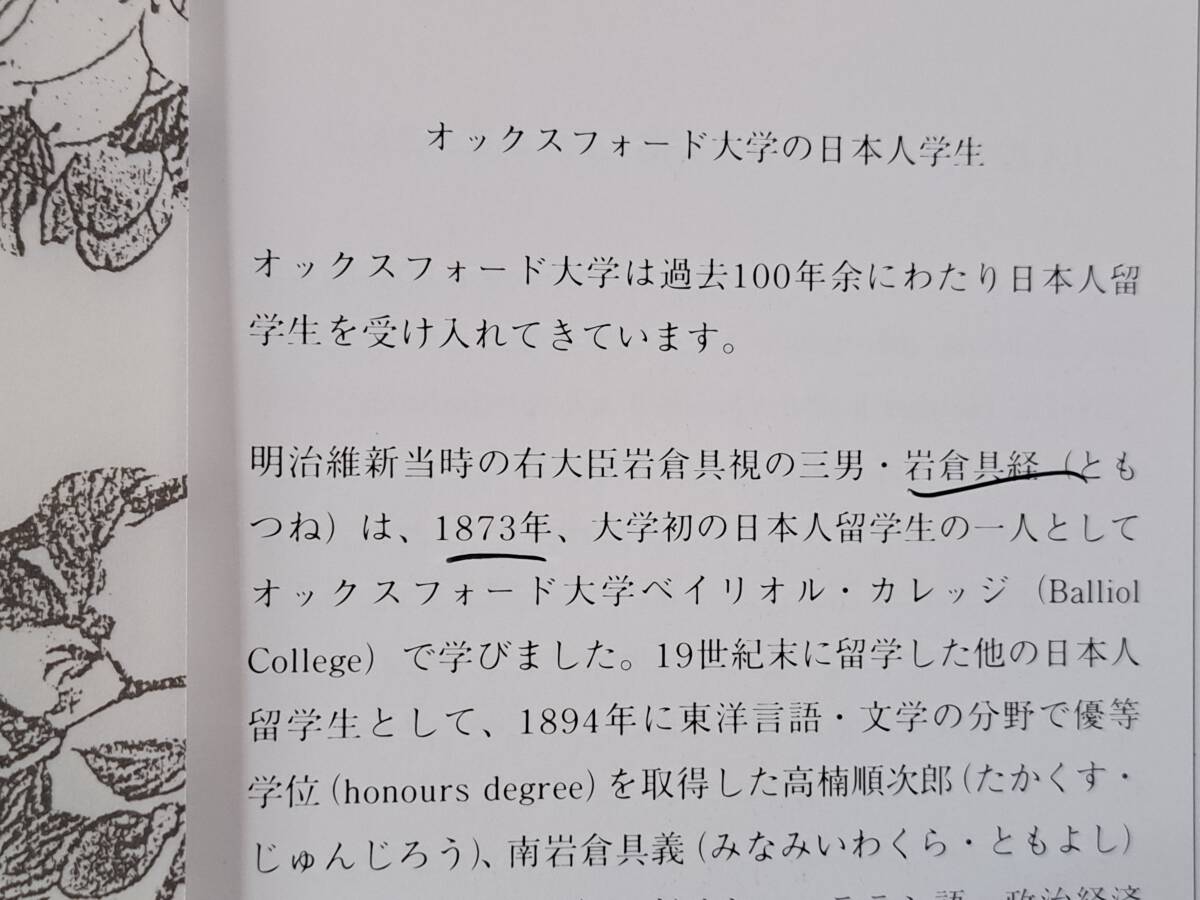 オックスフォード大学の日本人学生
オックスフォード大学は過去100年余にわたり日本人留
学生を受け入れてきています。
明治維新当時の右大臣岩倉具視の三男・岩倉具経（とも
つね）は、1873年、大学初の日本人留学生の一人として
オックスフォード大学ベイリオル・カレッジ（Balliol
College）で学びました。19世紀末に留学した他の日本人
留学生として、1894年に東洋言語・文学の分野で優等
学位(honours degree)を取得した高楠順次郎(たかくす・
じゅんじろう)、南岩倉具義(みなみいわくら・ともよし)
テン語、政治経済